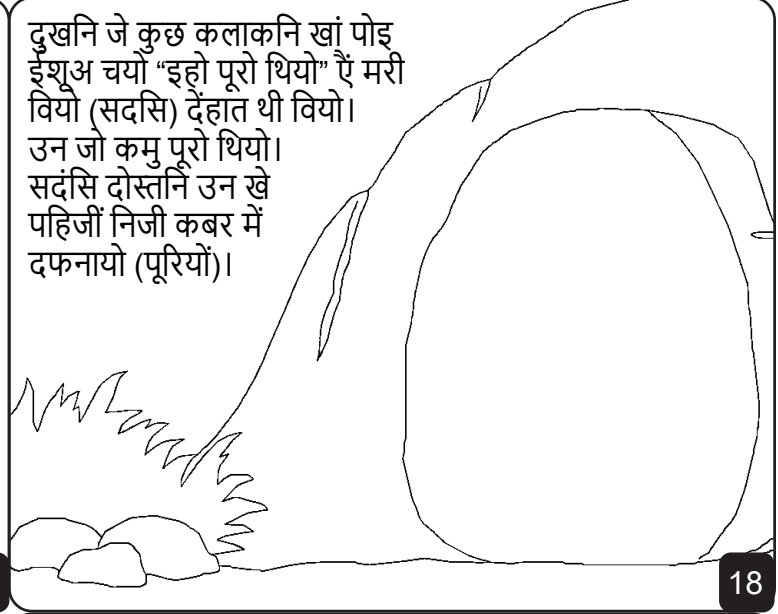 दुखनि जे कुछ कलाकनि खां पोइ
ईशूअ चयो “इहो पूरो थियो” ऐं मरी
वियो (सदसि) देंहात थी वियो।
उन जो कमु पूरो थियो।
सदंसि दोस्तनि उन खे
पहिजीं निजी कबर में
दफनायो (पूरियों)।
18